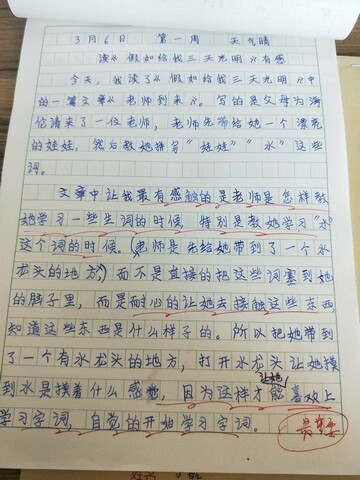 3月6日 第一周 天气晴
读《假如给我三天光明》有感
今天，我读了《假如给我三天光明》中
的一篇文章《老师到来》。写的是父母为海
伦请来了一位老师，老师先带给她一个漂亮
的娃娃，然后教她拼写“娃娃”“水”这些
词。
文章中让我最有感触的是老师是怎样教
她学习一些生词的时候，特别是教她学习“水”
这个词的时候。老师是先给她带到了一个水
龙头的地方，而不是直接的把这些词塞到她
的脖子里，而是耐心的让她去接触这些东西，
知道这些东西是什么样子的。所以把她带到
了一个有水龙头的地方，打开水龙头让她摸
到水是摸着什么感觉，因为这样才能让她喜欢上
学习字词，自觉的开始学习字词。